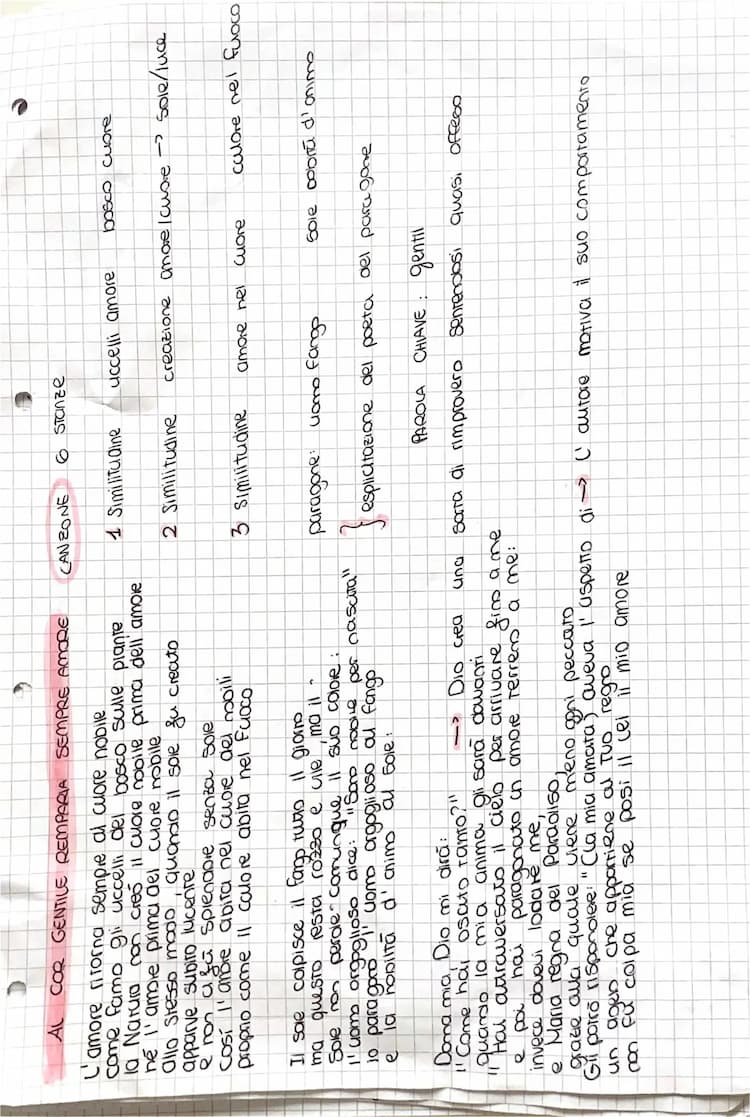 AL COR GENTILE REMPAIRA SEMPRE AMORE CANZONE 6 STANZE
L'amore ritorna sempre al cuore nobile
come fanno gli uccelli del bosco sulle piante
la Natura non creò il cuore nobile prima dell'amore
né l'amore prima del cuore nobile
allo stesso modo, quando il sole fu creato
apparve subito lucente
e non ci fu splendore senza sole
Così l'amore abita nel cuore dei nobili
proprio come il calore abita nel fuoco
1 Similitudine uccelli amore bosco cuore
2 Similitudine creazione amore/cuore -> sole/luce
3 Similitudine amore nel cuore calore nel fuoco
Il sole colpisce il fango tutto il giorno
ma questo resta rozzo e vile, ma il
Sole non perde comunque il suo calore:
l'uomo orgoglioso dice: "Sono nobile per nascita"
Io paragono l'uomo orgoglioso al fango
e la nobiltà d'animo al sole:
paragone: uomo fango sole nobiltà d'animo
} esplicitazione del poeta del paragone
PAROLA CHIAVE: gentil
Donna mia, Dio mi dirà:
"Come hai osato tanto?" -> Dio crea una sorta di rimprovero sentendosi quasi offeso
quando la mia anima gli sarà davanti
"Hai attraversato il cielo per arrivare fino a me
e poi hai paragonato un amore terreno a me:
invece dovevi lodare me,
e Maria regna del Paradiso,
grazie alla quale viene meno ogni peccato
Gli potrò rispondere: "(la mia amata) aveva l'aspetto di -> L'autore motiva il suo comportamento
un angelo che appartiene al Tuo regno
non fu colpa mia se posi il lei il mio amore